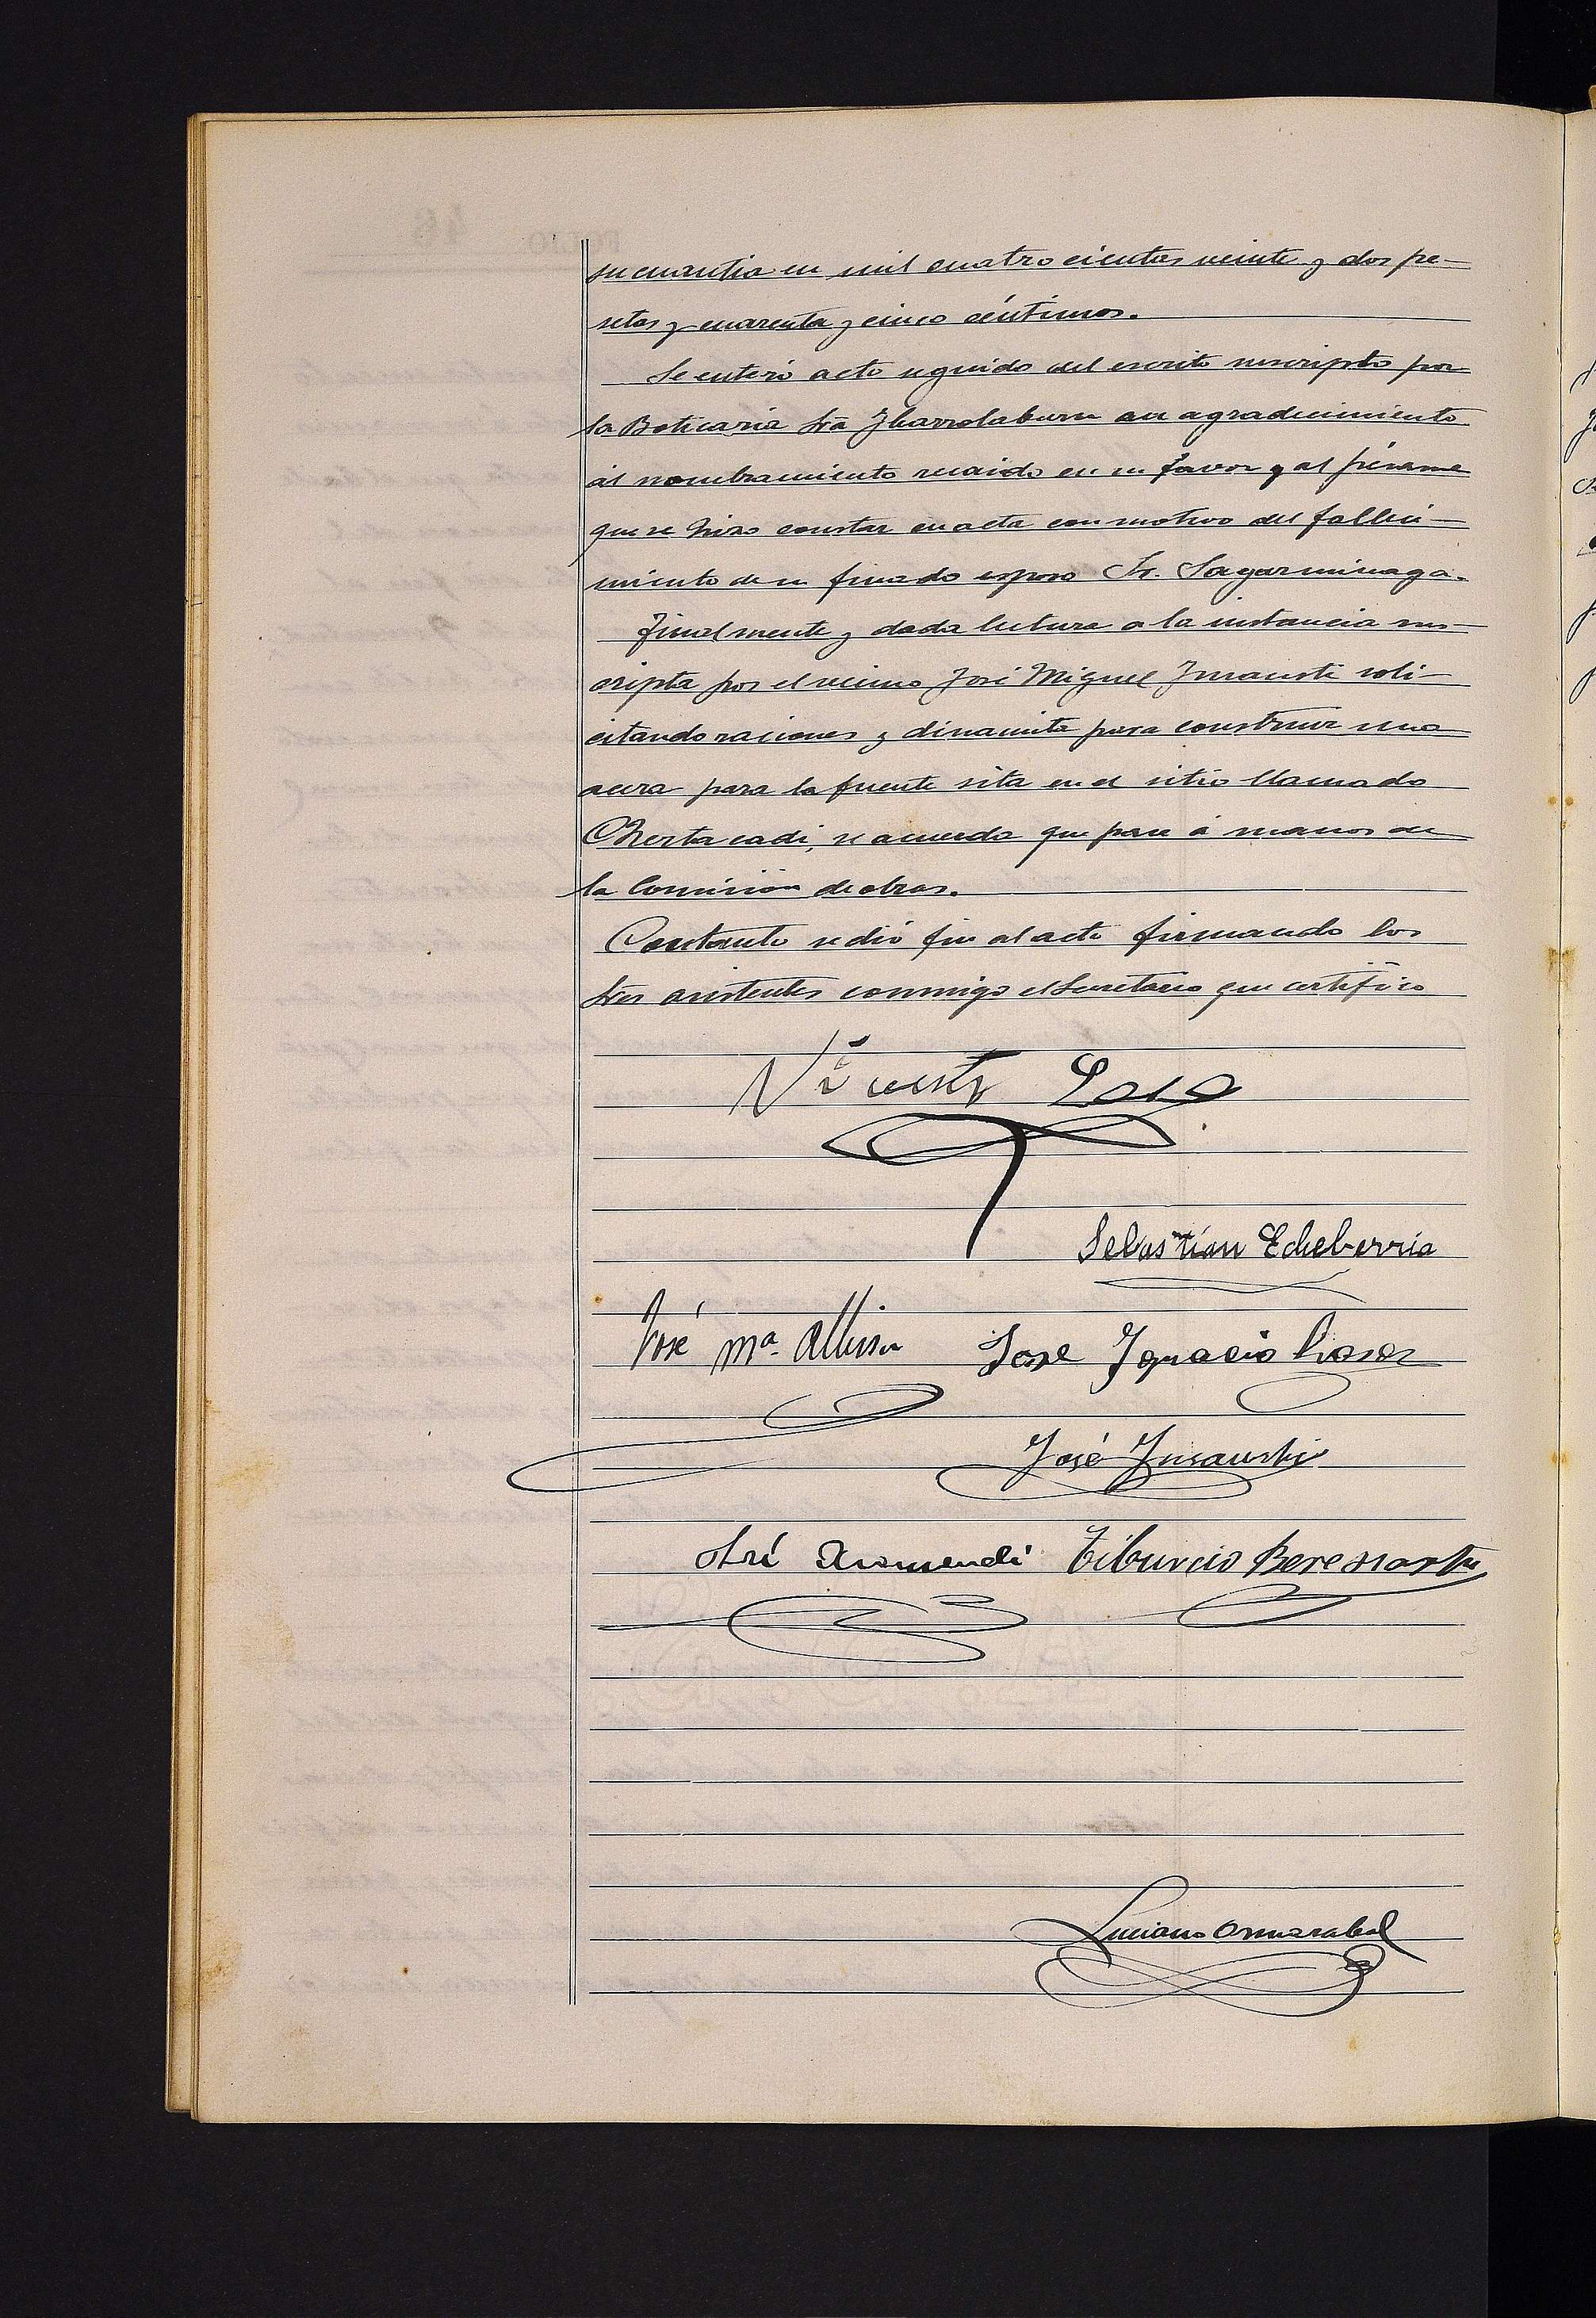 su cuantia en mil cuatro cientas veinte y dos pe-
setas y cuarenta y cinco céntimos.
Se enteró acto seguido del escrito suscripto por
la Boticaria Sra Ybarrolaburu en agradecimiento
al nombramiento recaido en su favor y al pésame
que se hizo constar en acta con motivo del falleci-
miento de su finado esposo Sr. Sagarminaga.
Finalmente y dada lectura a la instancia sus-
cripta por el vecino José Miguel Ynsausti soli-
citando raciones y dinamita para construir una
acera para la fuente sita en el sitio llamado
se acuerda que pase á manos de
la Comisión de obras.
Contanto se dió fin al acto firmando los
Sres asistentes conmigo el Secretario que certifico
Vicente
Sebastian Echeberria
José Mª Jose Ygnacio
José Ynsausti
José Aramendi Tiburcio Beresiartu
Luciano Ormazabal